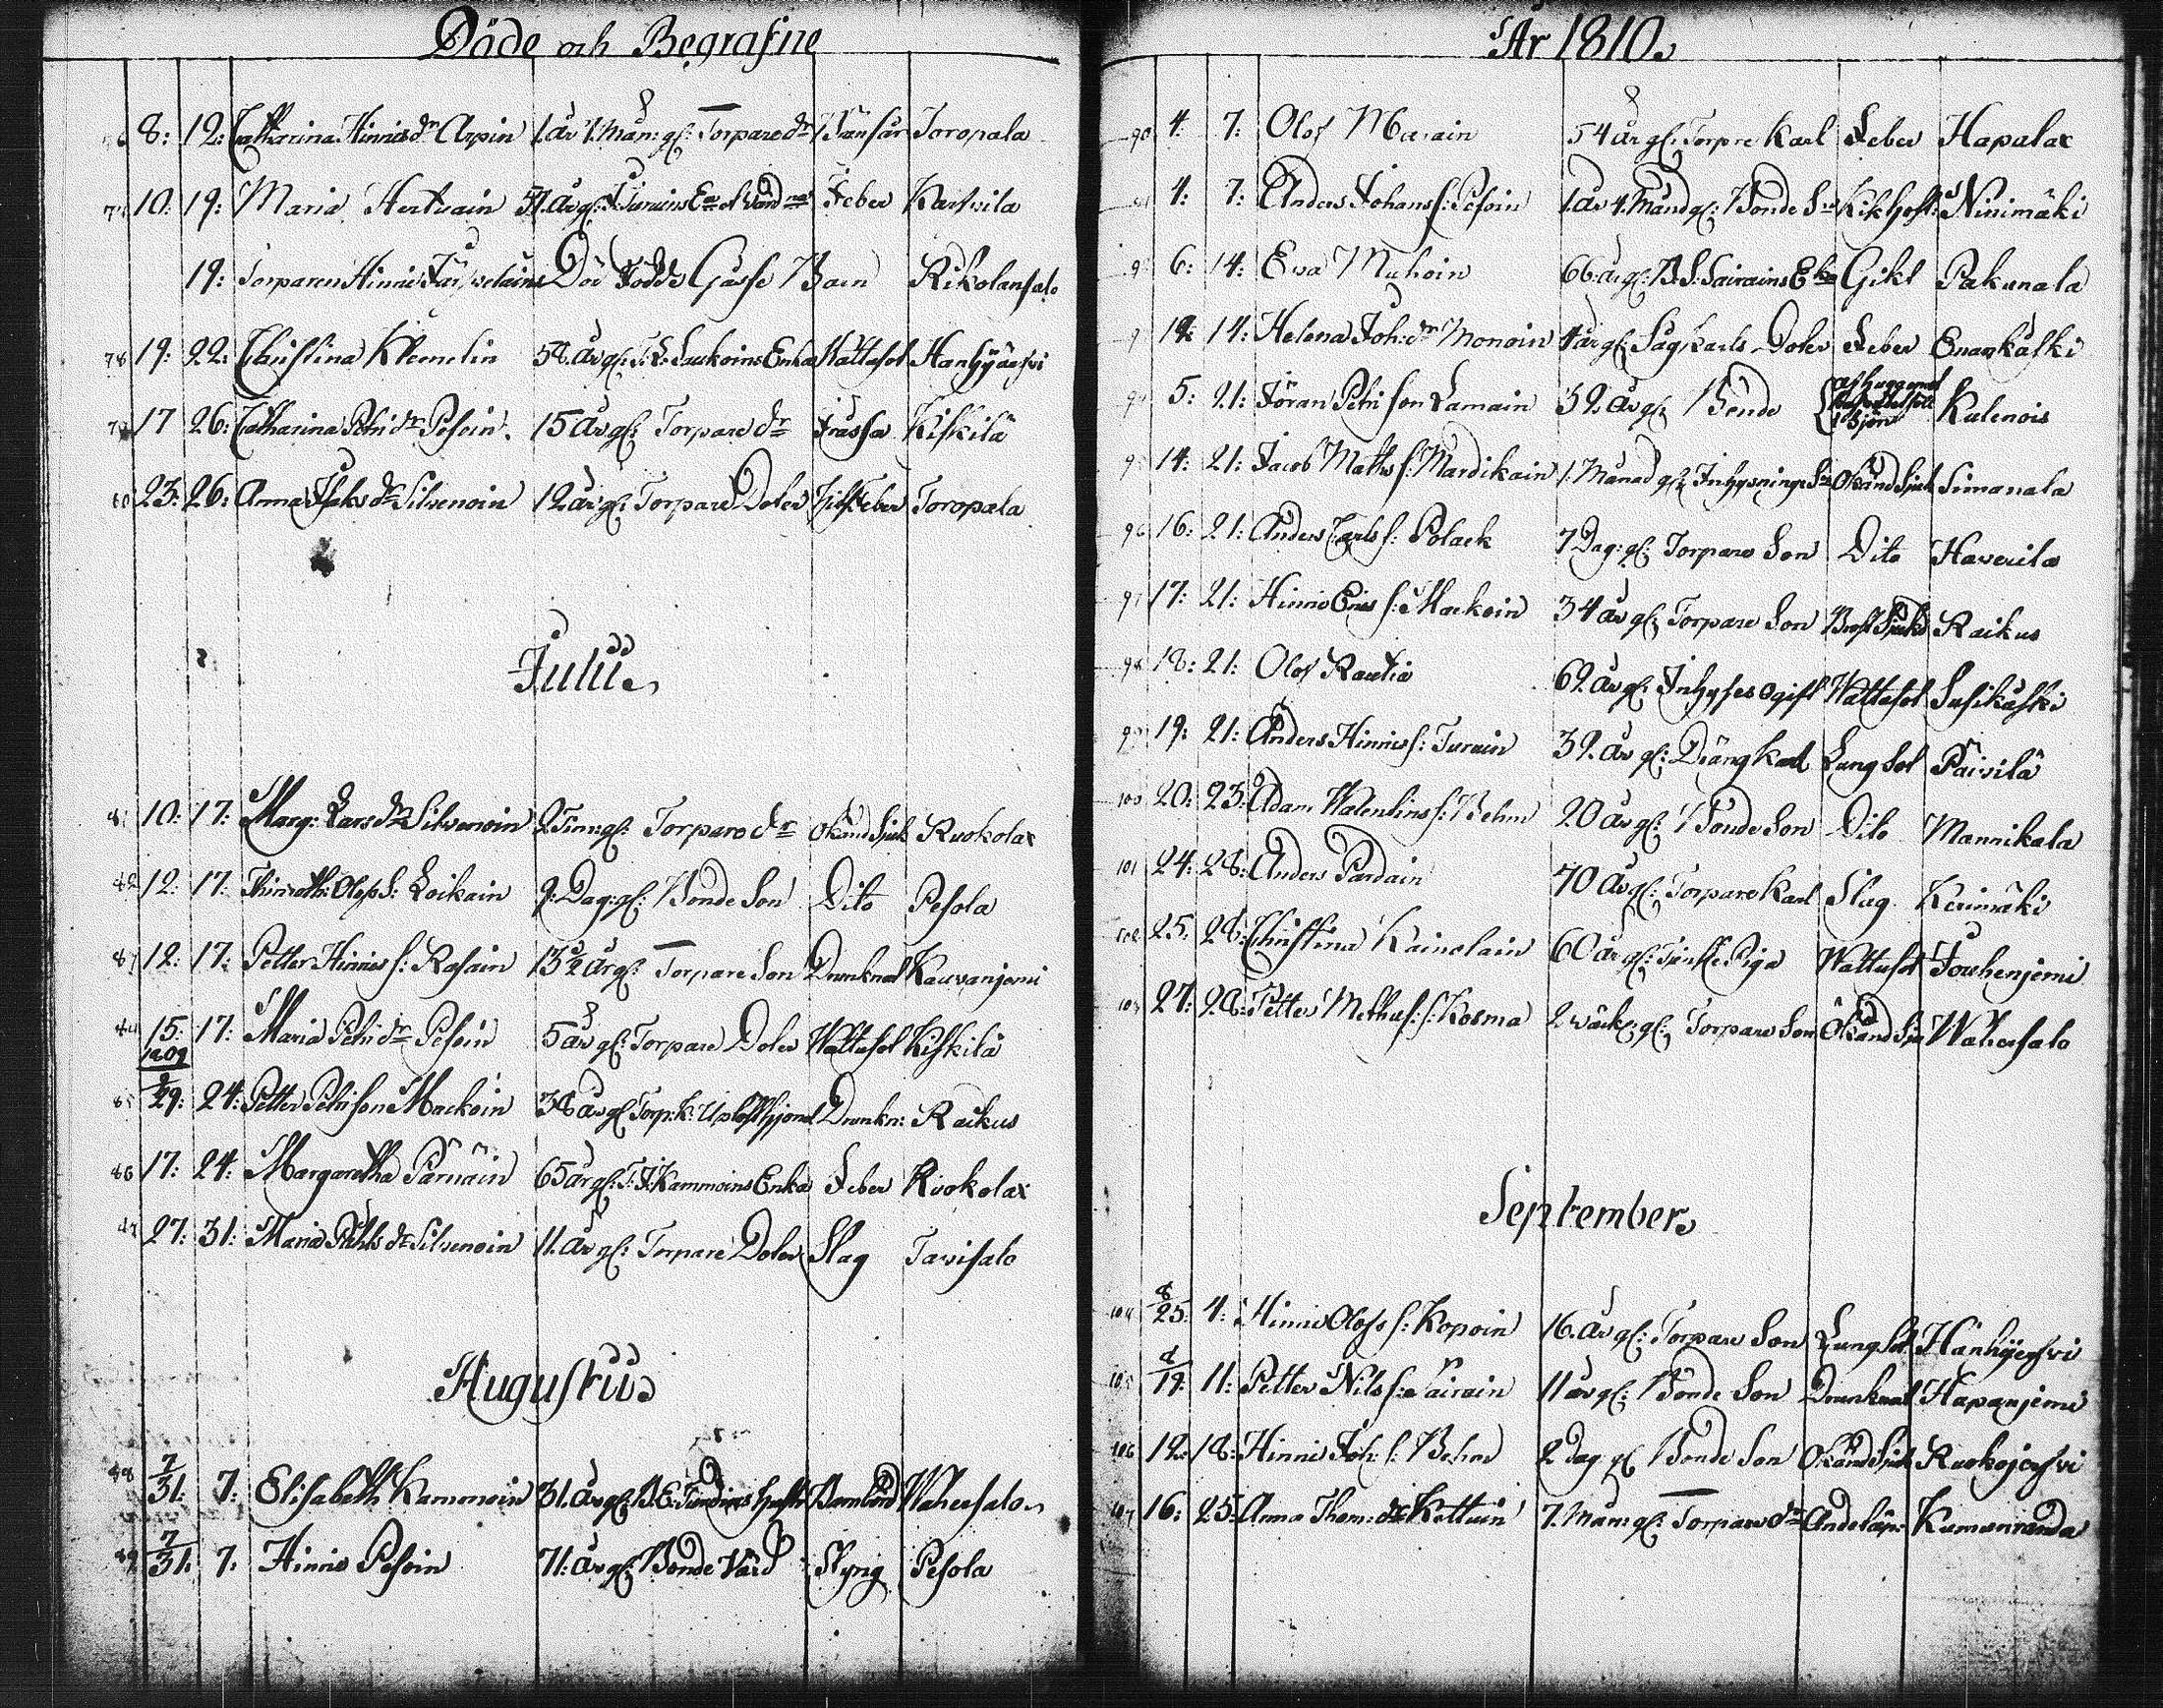 Döde och Begrafne
8: 12: Catharina Hinrics dr Arpin 1. År 1. Mån: gl: Torpare dr Toropala
10: 19: Maria Hertuain 57. År gl: Feber Karsvila
19: Torparen Hinric Död Född Gosse Barn Rikolansalo
78 19: 22: Christina Klemelin 58. År gl: T: L: Laukoins Enka Wattusot Hanhijärfvi
79 17 26: Catharina Petri dr Pesoin. 15 År gl: Torpare dr Frässa Kiskilä
80 23: 26: Anna Isaks dr Silvenoin 12 år gl: Torpare Doter Feber Toropala
Julii.
81 10: 17: Marg: Lars dr Silvenoin 2 Tim: gl: Torpare dr Okänd Sjuk Ruokolax
82 12: 17: Olofs S: Loikain 9: Dag: gl: Bonde Son Dito Pesola
12: 17: Petter Hinrics s: Rasain 13½ År gl: Torpare Son Drunknad Kauvanjemi
84 15: 17: Maria Petri dr Pesoin 5 år gl: Torpare Doter Wattusot Kiskilä
1809
85 29: 24: Petter Petri son Mackoin 38 år gl: Torp: k: Drunkn: Raikus
86 17: 24: Margaretha Pärnäin 65 år gl: T: J: Kammoins Enka Feber Ruokolax
27: 31: Maria Påhls dr Silvenoin 11. År gl: Torpare Doter Slag Tarvisalo
Augustii.
88 7/31: 7: Elisabeth Kammoin 31. År gl: B: E: Barnbörd Wahersalo
89 7/31: 7: Hinric Pesoin 71: År gl: Bonde Styng Pesola
År 1810.
90 4: 7: Olof 54 år gl: Torpre Karl Feber Hapalax
4: 7: Anders Johans s: Pesoin 1. år 4. Månd gl: Bonde Sn Kikhost: Ninimäki
6: 14: Eva Muhoin 66. år gl: B: S: Sairains Eka Gikt Pakunala
12: 14: Helena Joh: dr Monoin 4 år gl: Sågkarls Doter Feber Enankåski
5: 21: Jöran Petri son Lamain 32. År gl: Bonde Kulenois
14: 21: Jacob Maths s: Mardikain 1. Månad gl: Inhysninge Sn Okänd Sjuk Simanala
96 16: 21: Anders Carls s: Polack 7 Dag: gl: Torpare Son Dito Haverila
97 17: 21: Hinric Erics s: Mackoin 34 år gl: Torpare Son Bröst Sjuk Raikus
98 18: 21: Olof Rautia 62. År gl: Inhyses ogift Wattusot Susikåski
99 19: 21: Anders Hinrics s: Turuin 32. År gl: Drängkarl Lungsot Päivilä
100 20: 23: Adam Walentins s: Behm 20 År gl: Bonde Son Dito Mannikala
101 24: 28: Anders Pardain 70 År gl: Torpare Karl Slag Kerimäki
102 25: 28: Christina Kainolain 60 år gl: Piga Wattusot Jouhenjemi
103 27: 28: Petter Mathus s: Kosma 2 wäck: gl: Torpare Son Okänd Sju Wahersalo
September.
104 8/25: 4: Hinric Olofs s: Kopoin 16. År gl: Torpare Son Lungsot Hanhijerfvi
105 19: 11: Petter Nils s: Sairain 11 år gl: Bonde Son Drunknad Hapanjemi
106 12: 18: Hinric Joh: s: Behm 2 Dag gl: Bonde Son Okänd Sjuk Ruokojerfvi
107 16: 25: Anna Thom: dr Kettuin 7. Mån: gl: Torpare dr Andetäp: Kumunranda